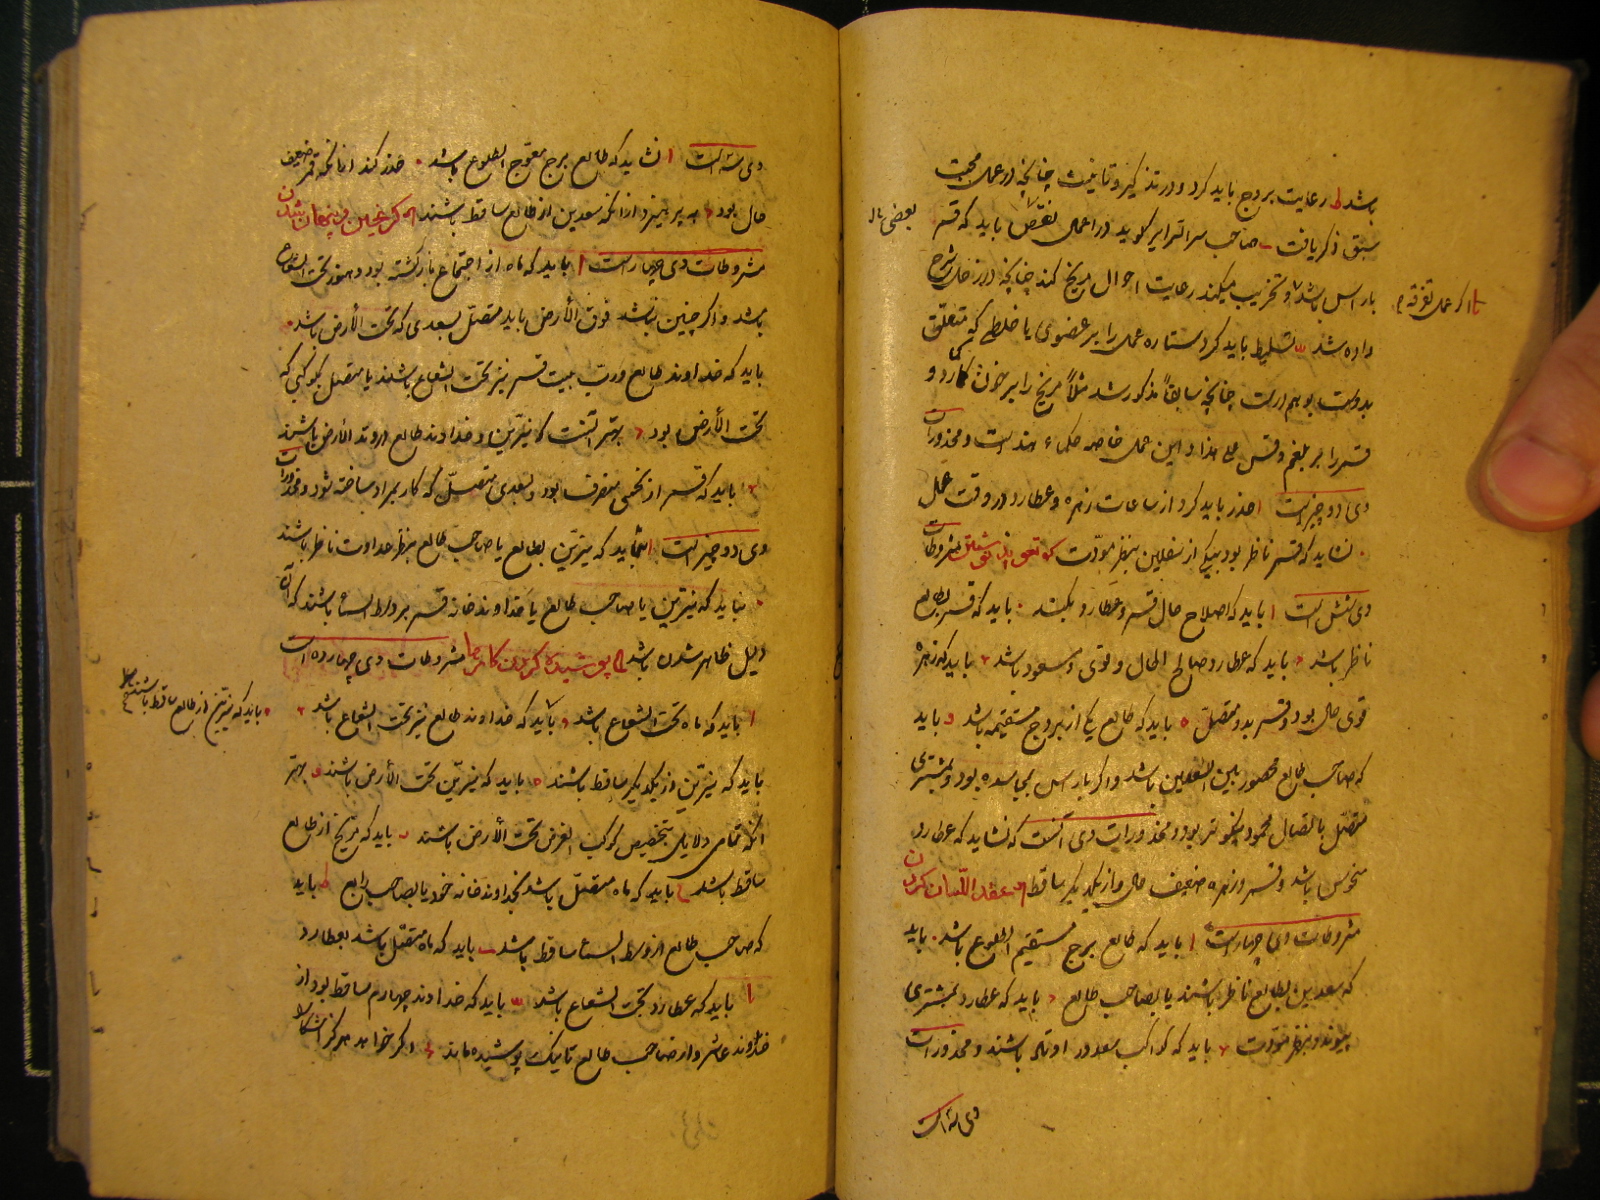 باشد ط رعایت بروج باید کرد و در تذکیر و تانیث چنانچه در عمل محبت
سبق ذکر یافت صاحب سر گوید در اعمال باید که قمر
بعضی
با راس باشد و تخریب میکند رعایت احوال مریخ کند چنانچه در زحل شرح
اگر عمل تفرقه
داده شد تسلیط باید کرد ستاره عمل را بر عضوی یا خلطی که متعلق
بدوست چنانچه سابقاً مذکور شد مثلاً مریخ را بر خون کمارد و
قمر را بر بلغم و قس علی هذا و این عمل خاصه حکماء هند است و محذورات
وی دو چیز است ا حذر باید کرد از ساعات زهره و عطارد در وقت عمل
نشاید که قمر ناظر بود بیکی از سعدین بنظر مودت مشروطات
وی شش است ا باید که اصلاح حال قمر و عطارد بکنند باید که قمر بطالع
ناظر باشد باید که عطارد صالح الحال و قوی و مسعود باشد باید که زهره
قوی حال بود و قمر بدو متصل ه باید که طالع یکی از بروج مستقیمه باشد و باید
که صاحب طالع محصور بین السعدین باشد و اگر با راس بود و بمشتری
متصل باتصال محمود نیکوتر بود و محذورات وی آنست که نشاید که عطارد
منحوس باشد و قمر و زهره ضعیف حال و از یکدیگر ساقط عقد اللسان کردن
مشروطات وی چهار است ا باید که طالع برج مستقیم الطلوع باشد باید
که سعدین بطالع ناظر باشند یا بصاحب طالع باید که عطارد بمشتری
پیوندد بنظر مودت باید که کواکب سعد در اوتاد باشند و محذورات
وی سه است
وی سه است ا نشاید که طالع برج معوج الطلوع باشد حذر کند از آنکه قمر ضعیف
حال بود بپرهیزد از آنکه سعدین از طالع ساقط باشند
مشروطات وی چهار است ا باید که ماه از اجتماع بازگشته بود و هنوز تحت الشعاع
باشد و اگر چنین نباشد فوق الأرض باید متصل بسعدی که تحت الأرض باشد
باید که خداوند طالع و رب بیت قمر نیز تحت الشعاع باشند یا متصل بکوکبی که
تحت الأرض بود بهتر آنست که نیرین و خداوند طالع در وتد الأرض باشند
باید که قمر از نحسی منصرف بود و بسعدی متصل که کار بمراد ساخته شود و محذورات
وی دو چیز است نباید که نیرین بطالع یا صاحب طالع بنظر عداوت ناظر باشند
نباید که نیرین یا صاحب طالع یا خداوند خانه قمر بر وسط السماء باشند که آن
دلیل ظاهر شدن باشد پوشیده کردن کارها مشروطات وی چهارده است
ا باید که ماه تحت الشعاع باشد باید که خداوند طالع نیز تحت الشعاع باشد
باید که نیرین از طالع ساقط باشند
باید که نیرین از یکدیگر ساقط باشند ه باید که نیرین تحت الأرض باشند و بهتر
آنکه تمامی دلایل بتخصیص کوکب الغرض تحت الأرض باشند باید که مریخ از طالع
ساقط باشد باید که ماه متصل باشد بخداوند خانه خود یا بصاحب رابع ط باید
که صاحب طالع از وسط السماء ساقط باشد باید که ماه متصل باشد بعطارد
باید که عطارد تحت الشعاع باشد باید که خداوند چهارم ساقط بود از
خداوند عاشر و از صاحب طالع تا نیک پوشیده ماند و اگر خواهد هرگز آشکارا